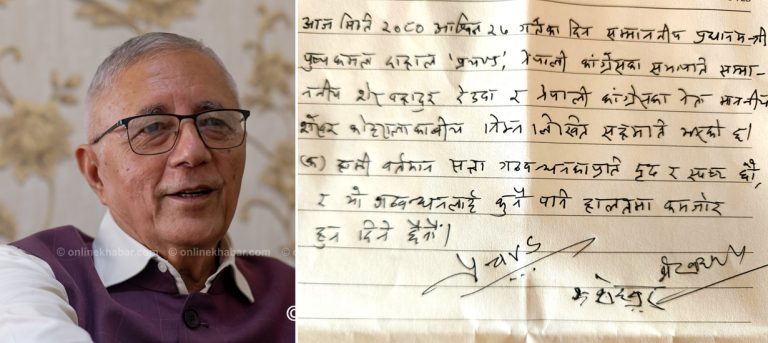 © onlinekhabar.com © onlinekhabar.com
आज मिति २०८० आश्विन २५ गतेका दिन सम्माननीय प्रधानमन्त्री
पुष्पकमल दाहाल 'प्रचण्ड', नेपाली कांग्रेसका सभापति सम्मा-
ननीय शेर बहादुर देउवा र नेपाली कांग्रेसका नेता माननीय
शेखर कोइरालाकाबीच निम्न लिखित सहमति भएको छ।
(क) हामी वर्तमान सत्ता गठबन्धनकाप्रति दृढ र स्पष्ट छौं,
र यो गठबन्धनलाई कुनै पनि हालतमा कमजोर
हुन दिने छैनौं।